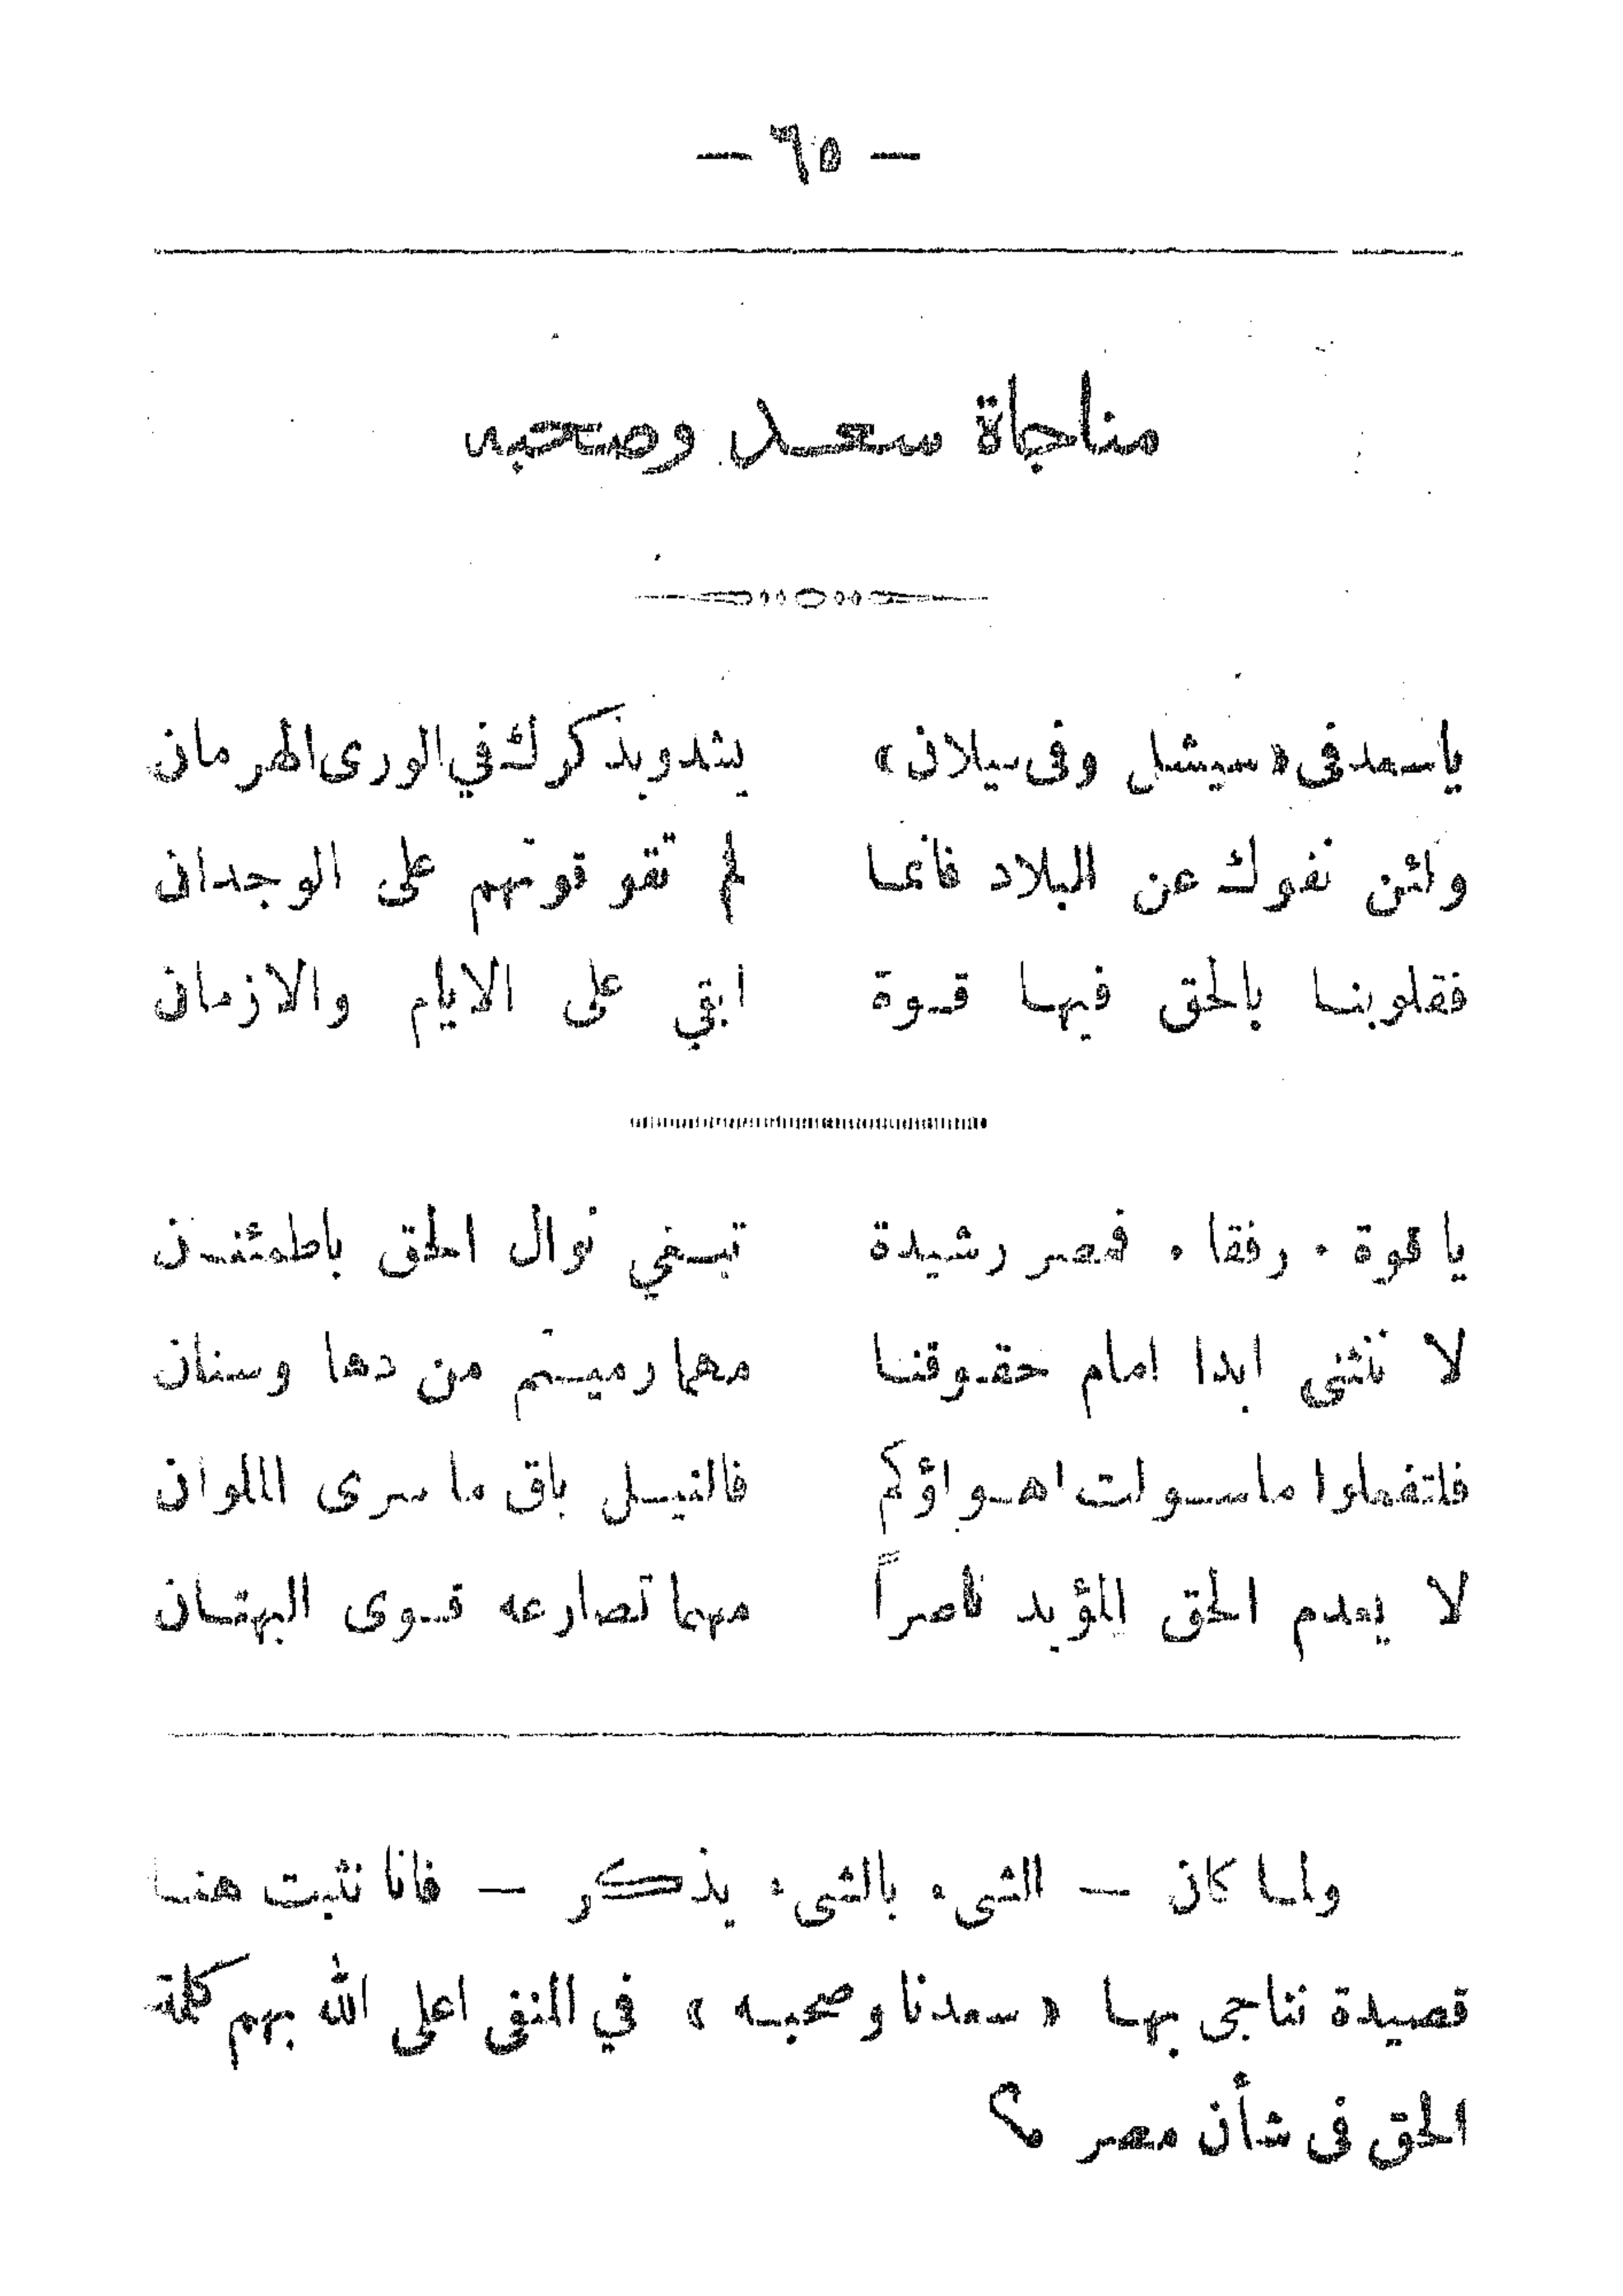 — ٦٥ —
مناجاة سعد وصحبه
ياسعد فى «سيشل وفى سيلان» يشدو بذكرك في الورى الهرمان
ولئن نفوك عن البلاد فانما لم تقو قوتهم على الوجدان
فقلوبنا بالحق فيها قوة ابقي على الايام والازمان
يا قوة . رفقا . فمصر رشيدة تبغي نوال الحق باطمئنن
لا ننثنى ابدا امام حقوقنا مهما رميتم من دها وسنان
فلتفعلوا ما سولت اهواؤكم فالنيل باق ما سرى الملوان
لا يعدم الحق المؤيد ناصراً مهما تصارعه قوى البهتان
ولما كان — الشىء بالشىء يذكر — فانا نثبت هنا
قصيدة نناجى بها «سعدنا وصحبه» في المنفى اعلى الله بهم كلمة
الحق فى شأن مصر